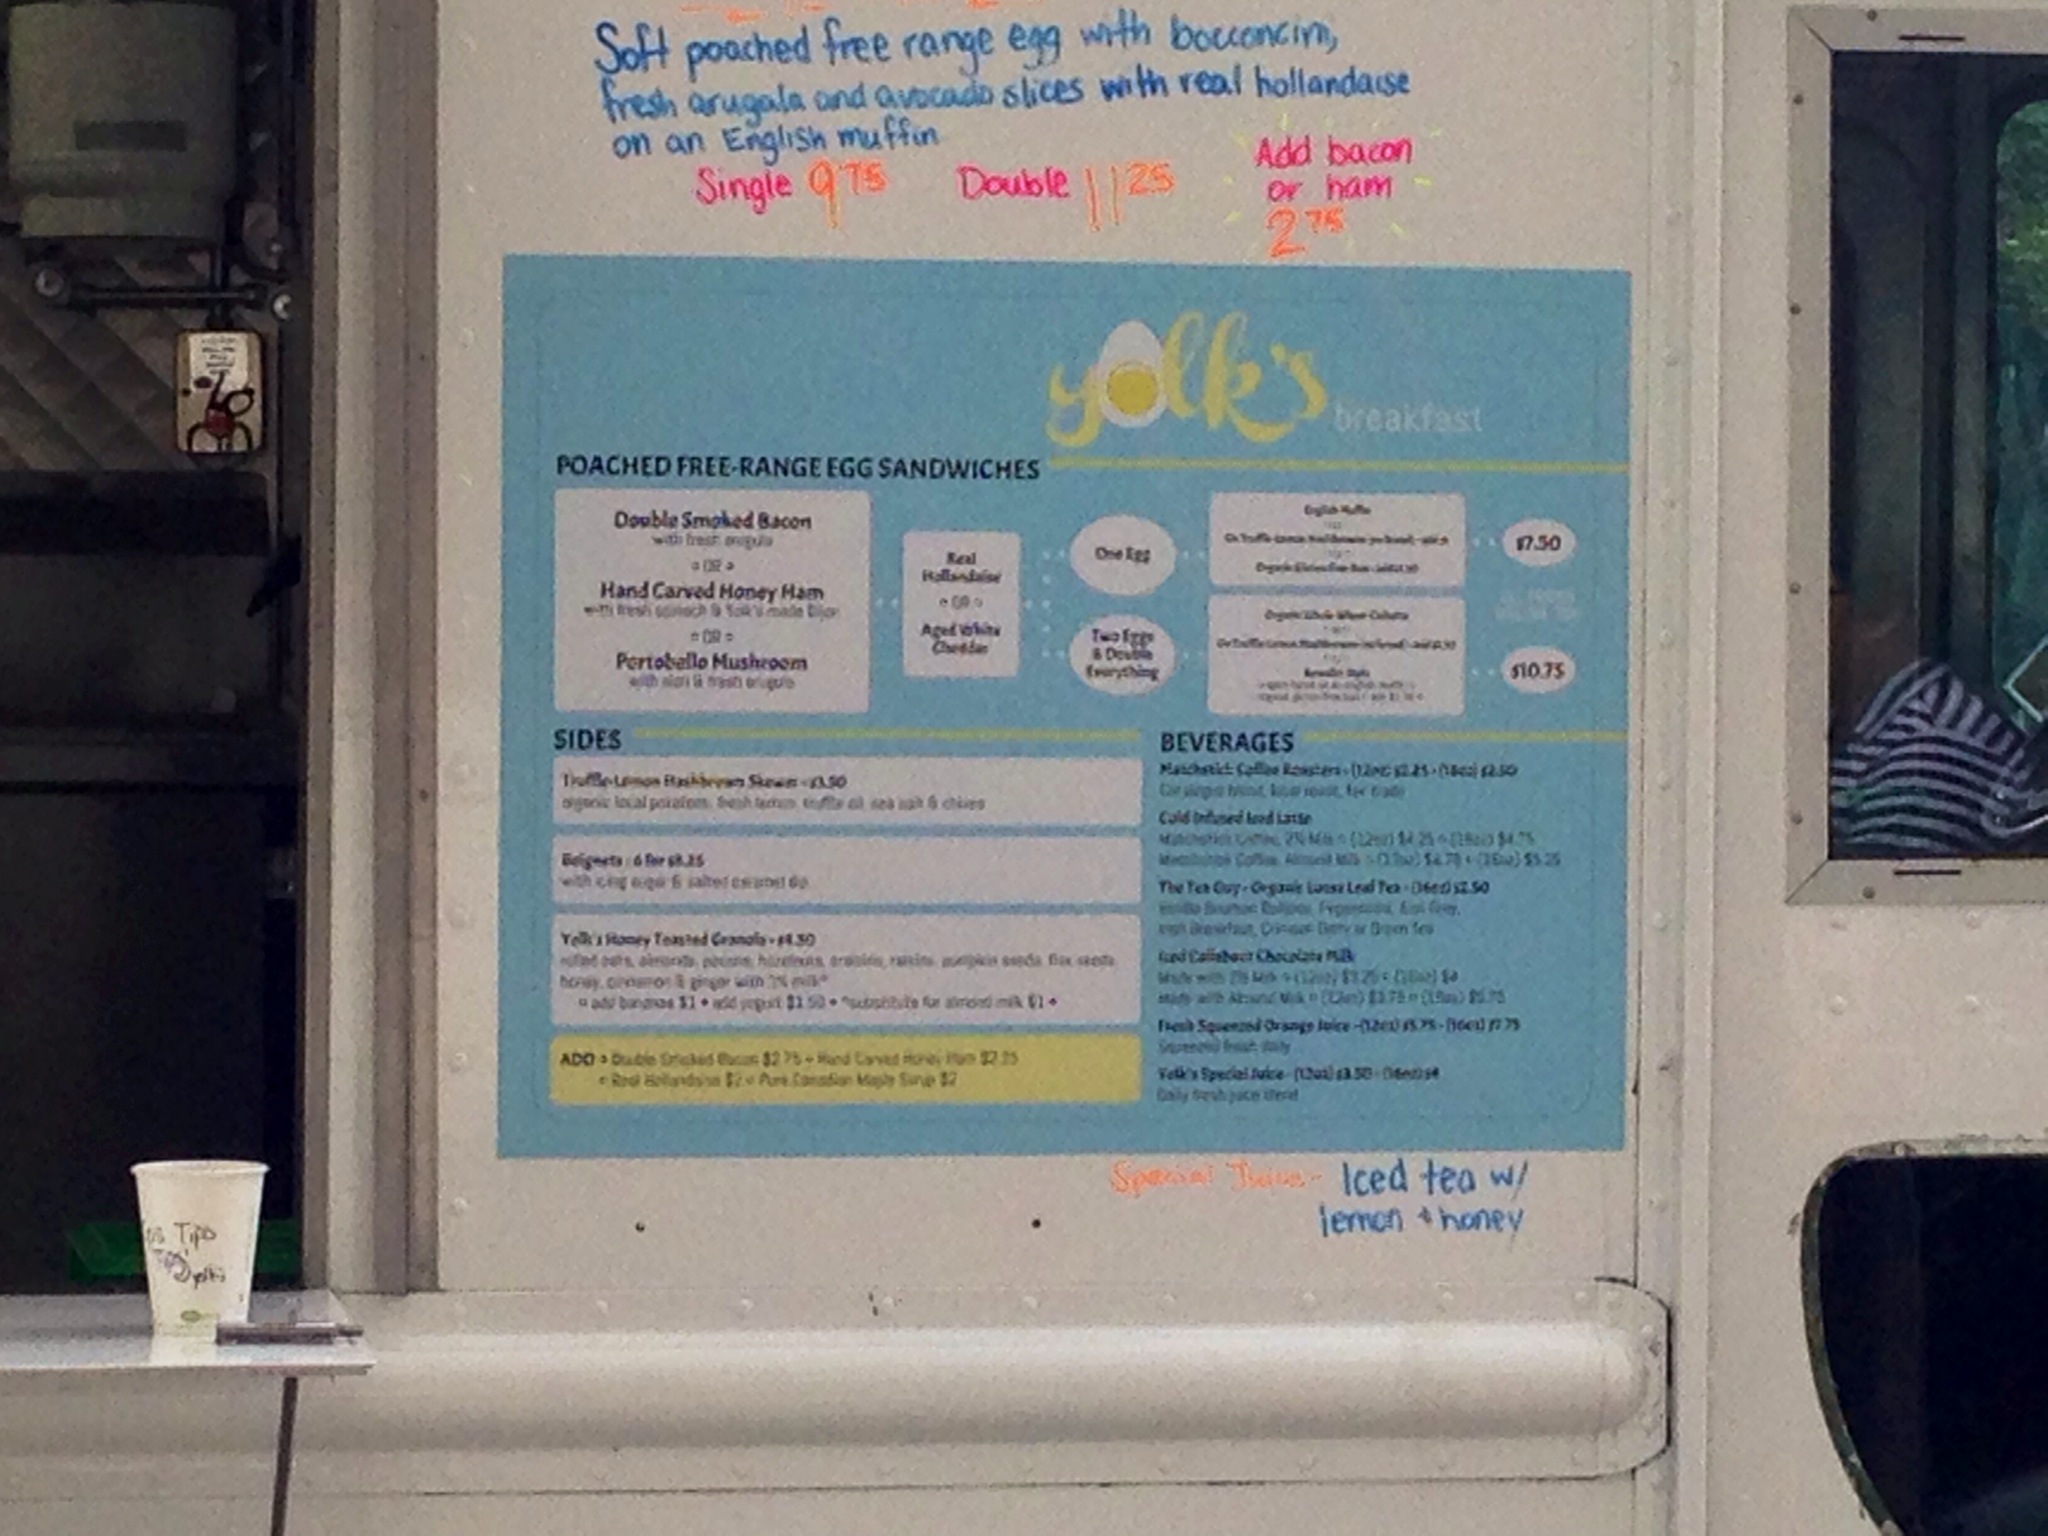 Soft poached free range egg with bocconcini,
fresh arugala and avocado slices with real hollandaise
on an English muffin
Single 9.75 Double 11.25 Add bacon
or ham
2.75
yolk's breakfast
POACHED FREE-RANGE EGG SANDWICHES
Double Smoked Bacon
with fresh arugula
OR
Hand Carved Honey Ham
with fresh spinach & Yolk's made Dijon
OR
Portobello Mushroom
with aioli & fresh arugula
Real
Hollandaise
OR
Aged White
Cheddar
One Egg
Two Eggs
& Double
Everything
English Muffin
$7.50
$10.75
SIDES
Truffle-Lemon Hashbrown Skewer - $3.50
organic local potatoes, fresh lemon, truffle oil, sea salt & chives
Beignets - 6 for
with icing sugar & salted caramel dip
Yolk's Honey Toasted Granola - $4.50
rolled oats, almonds, pecans, hazelnuts, raisins, pumpkin seeds, flax seeds
honey, cinnamon & ginger with 2% milk*
add bananas $1 • add yogurt $1.50 • *substitute for almond milk $1
ADD Double Smoked Bacon $2.75 Hand Carved Honey Ham
Real Hollandaise $2 Pure Canadian Maple Syrup $2
BEVERAGES
Matchstick Coffee Roasters - (12oz) $2.25 - (16oz) $2.50
Cold Infused Iced Latte
Matchstick Coffee, 2% Milk (12oz) $4.25 (16oz) $4.75
Matchstick Coffee, Almond Milk (12oz) $4.75 (16oz) $5.25
The Tea Guy - Organic Loose Leaf Tea - (16oz) $2.50
Peppermint, Earl Grey,
Irish Breakfast, or Green Tea
Iced Callebaut Chocolate Milk
Made with 2% Milk (12oz) (16oz) $4
Made with Almond Milk (12oz) $3.75 (16oz)
Fresh Squeezed Orange Juice - (12oz) $5.75 - (16oz) $7.75
Squeezed fresh daily
Yolk's Special Juice - (12oz) $3.50 - (16oz) $4
Daily fresh juice blend
Special Juice - Iced tea w/
lemon + honey
Tips